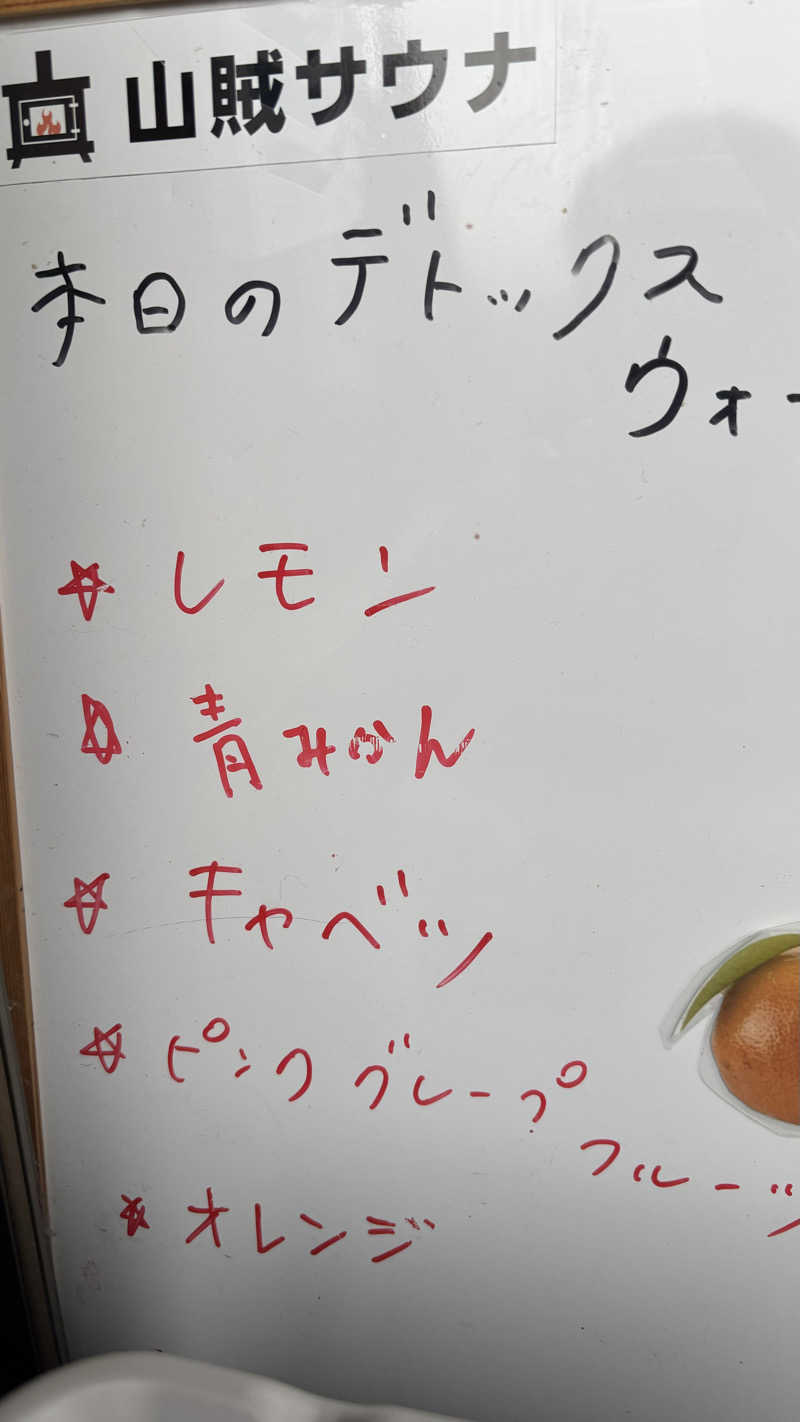 山賊サウナ
本日のデトックス
ウォー
☆レモン
☆青みかん
☆キャベツ
☆ピンクグレープ
フルーツ
☆オレンジ